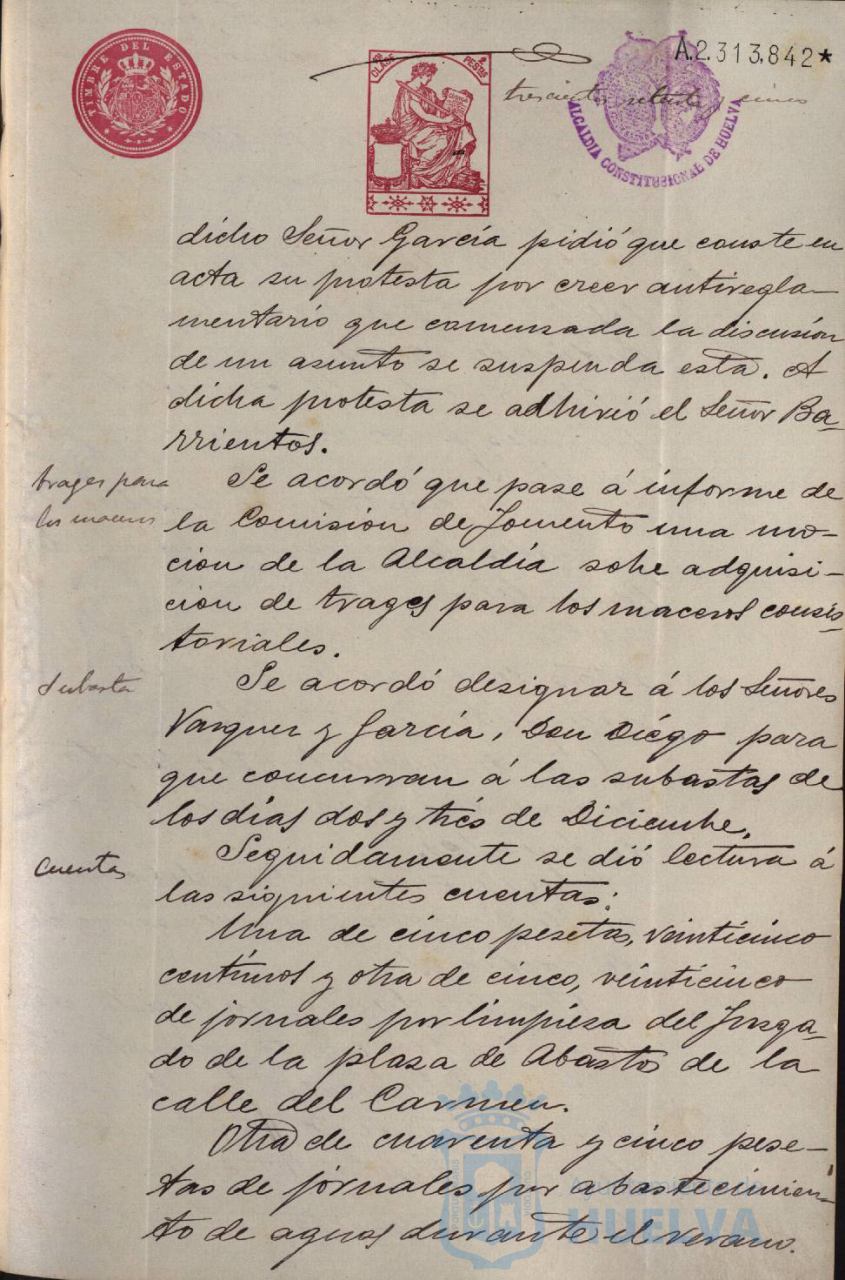 TIMBRE DEL ESTADO
CLASE
2 PESTAS
A.2.313.842*
trescientos setenta y cinco
ALCALDIA CONSTITUCIONAL DE HUELVA
dicho Señor García pidió que conste en
acta su protesta por creer antiregla-
mentario que comenzada la discusión
de un asunto se suspenda esta. A
dicha protesta se adhirió el Señor Ba-
rrientos.
trages para
los maceros
Se acordó que pase á informe de
la Comisión de Fomento una mo-
ción de la Alcaldía sobe adquisi-
cion de trages para los maceros consis-
toriales.
Subasta
Se acordó designar á los Señores
Vazquez y García, Don Diégo para
que concurran á las subastas de
los días dos y trés de Diciembe.
Cuentas
Seguidamente se dió lectura á
las siguientes cuentas:
Una de cinco pesetas, veinticinco
centimos y otra de cinco, veinticinco
de jornales por limpieza del Juzga-
do de la plaza de Abastos de la
calle del Carmen.
Otra de cuarenta y cinco pese-
tas de jórnales por abastecimien-
to de aguas durante el verano.
HUELVA